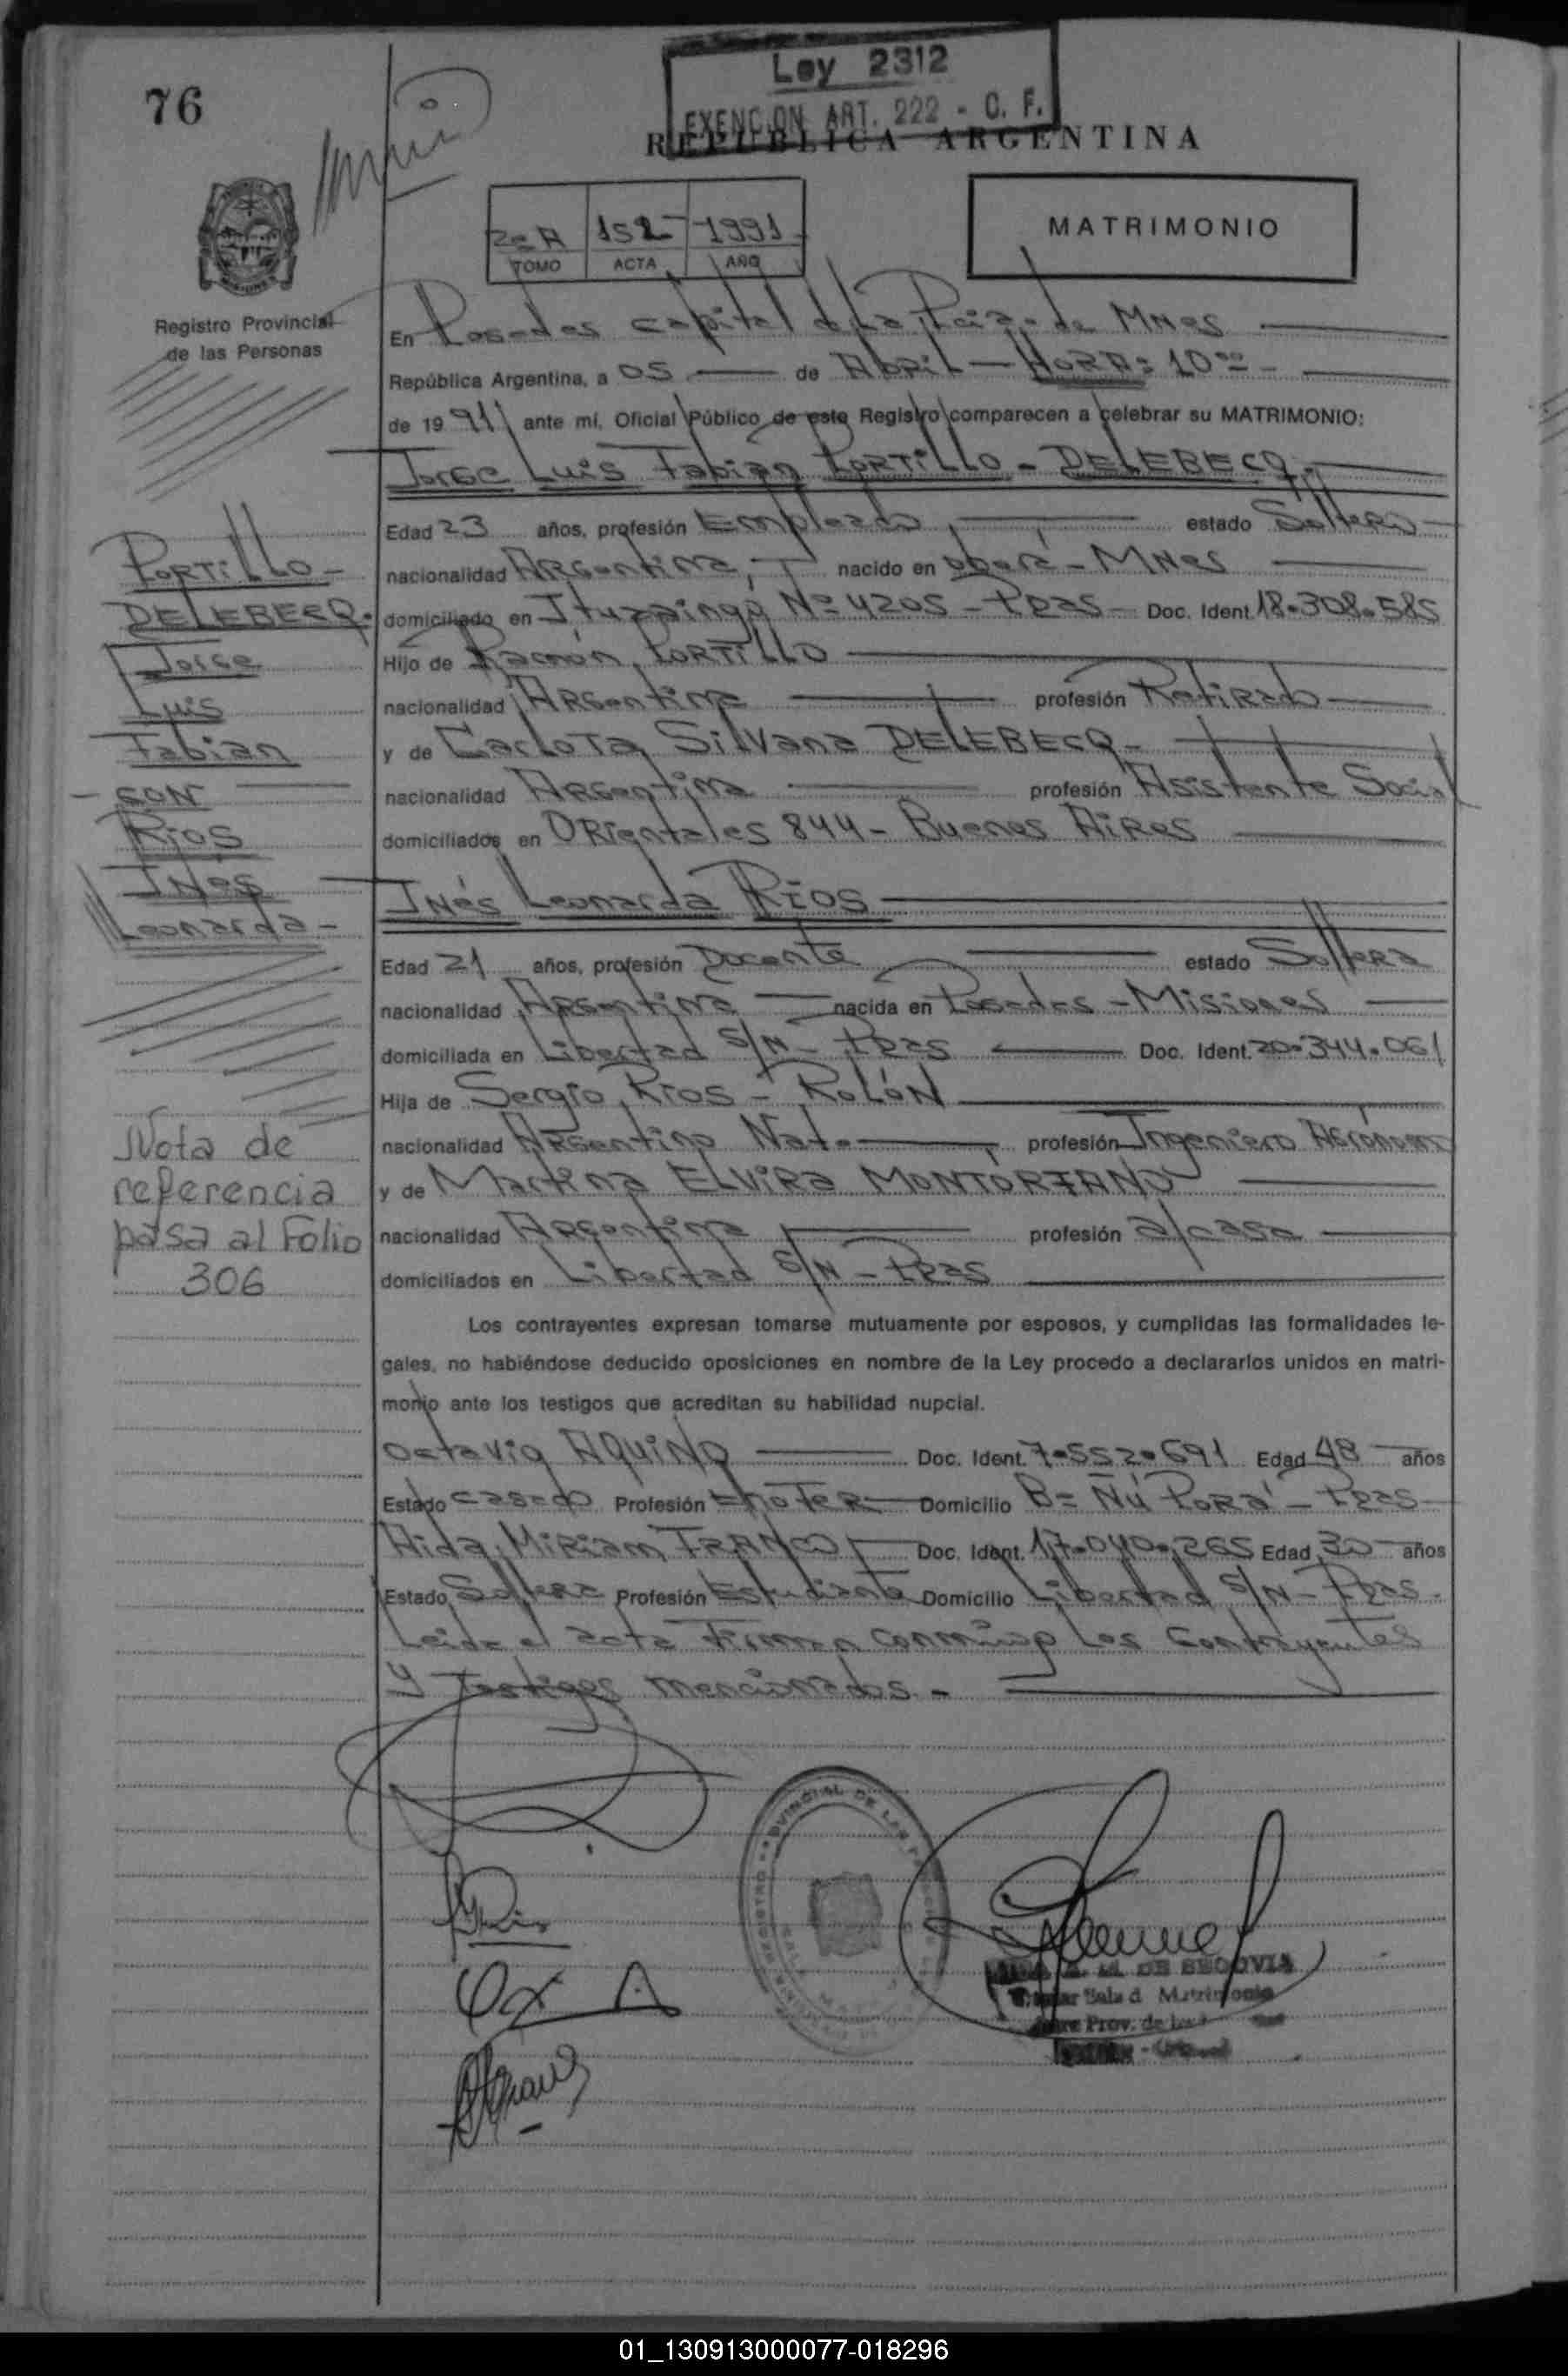 76
Ley 2312
EXENCION ART. 222 - C. F.
REPUBLICA ARGENTINA
2º A 152 1991
TOMO ACTA AÑO
MATRIMONIO
Registro Provincial
de las Personas
En Posadas capital de la Pcia. de Mnes
República Argentina, a 05 de Abril - HORA: 10
de 1991 ante mí, Oficial Público de este Registro comparecen a celebrar su MATRIMONIO:
Jorge Luis Fabian PORTILLO - DELEBECQ.
Edad 23 años, profesión Empleado estado Soltero
nacionalidad Argentina, nacido en Oberá - Mnes
domiciliado en Ituzaingo Nº 4205 - Pdas - Doc. Ident. 18.308.585
Hijo de Ramón PORTILLO
nacionalidad Argentina profesión Retirado
y de Carlota Silvana DELEBECQ -
nacionalidad Argentina profesión Asistente Social
domiciliados en Orientales 844 - Buenos Aires
Inés Leonarda Rios
Edad 21 años, profesión Docente estado Soltera
nacionalidad Argentina nacida en Posadas - Misiones
domiciliada en Libertad S/N - Pdas Doc. Ident. 20.344.061
Hija de Sergio Rios - Rolón
nacionalidad Argentino Nat. profesión Ingeniero Agrónom
y de Martina Elvira MONTORFANO
nacionalidad Argentina profesión a/casa
domiciliados en Libertad S/N - Pdas
Los contrayentes expresan tomarse mutuamente por esposos, y cumplidas las formalidades le-
gales, no habiéndose deducido oposiciones en nombre de la Ley procedo a declararlos unidos en matri-
monio ante los testigos que acreditan su habilidad nupcial.
Octavio AQUINO Doc. Ident. 7.552.691 Edad 48 años
Estado casado Profesión Chofer Domicilio Bº Ñu Porá - Pdas
Aida Miriam FRANCO Doc. Ident. 17.040.265 Edad 30 años
Estado Soltera Profesión Estudiante Domicilio Libertad S/N - Pdas.
Leida el acta Firman conmigo los contrayentes
y testigos mencionados. -
PORTILLO -
DELEBECQ.
Jorge
Luis
Fabian
- CON
Rios
Inés
Leonarda -
Nota de
referencia
pasa al Folio
306
A. M. DE SEGOVIA
Sala d Matrimonio
Prov. de las
01_130913000077-018296